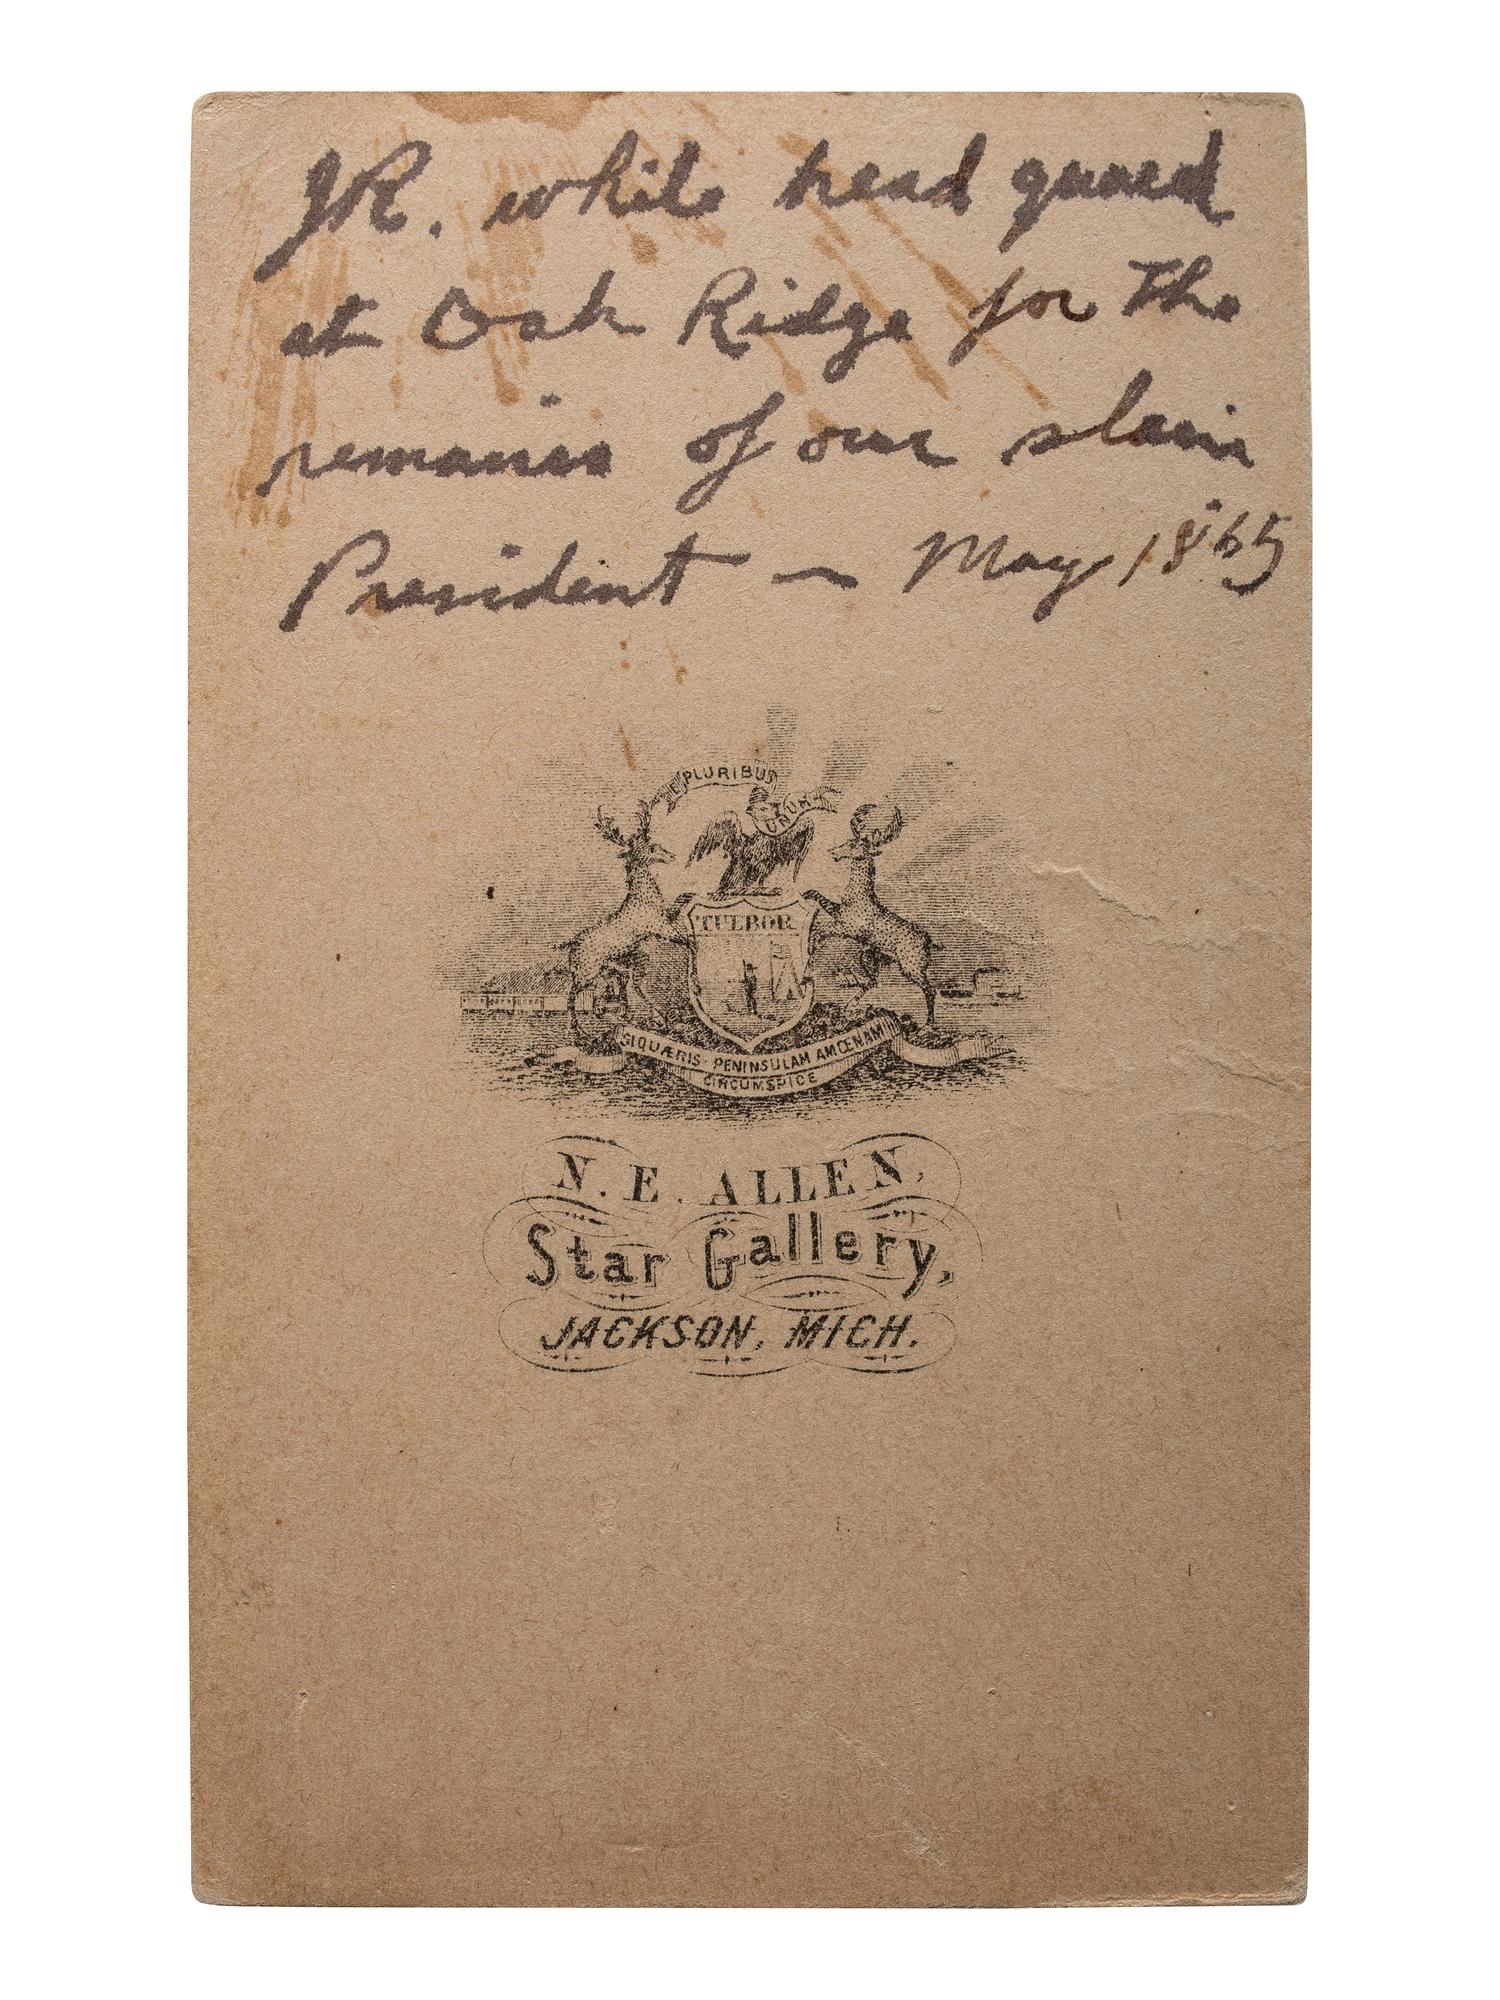 JR. while head guard
at Oak Ridge for the
remains of our slain
President — May 1865
E PLURIBUS
UNUM
TUEBOR
SI QUÆRIS PENINSULAM AMŒNAM
CIRCUMSPICE
N. E. ALLEN,
Star Gallery,
JACKSON, MICH.